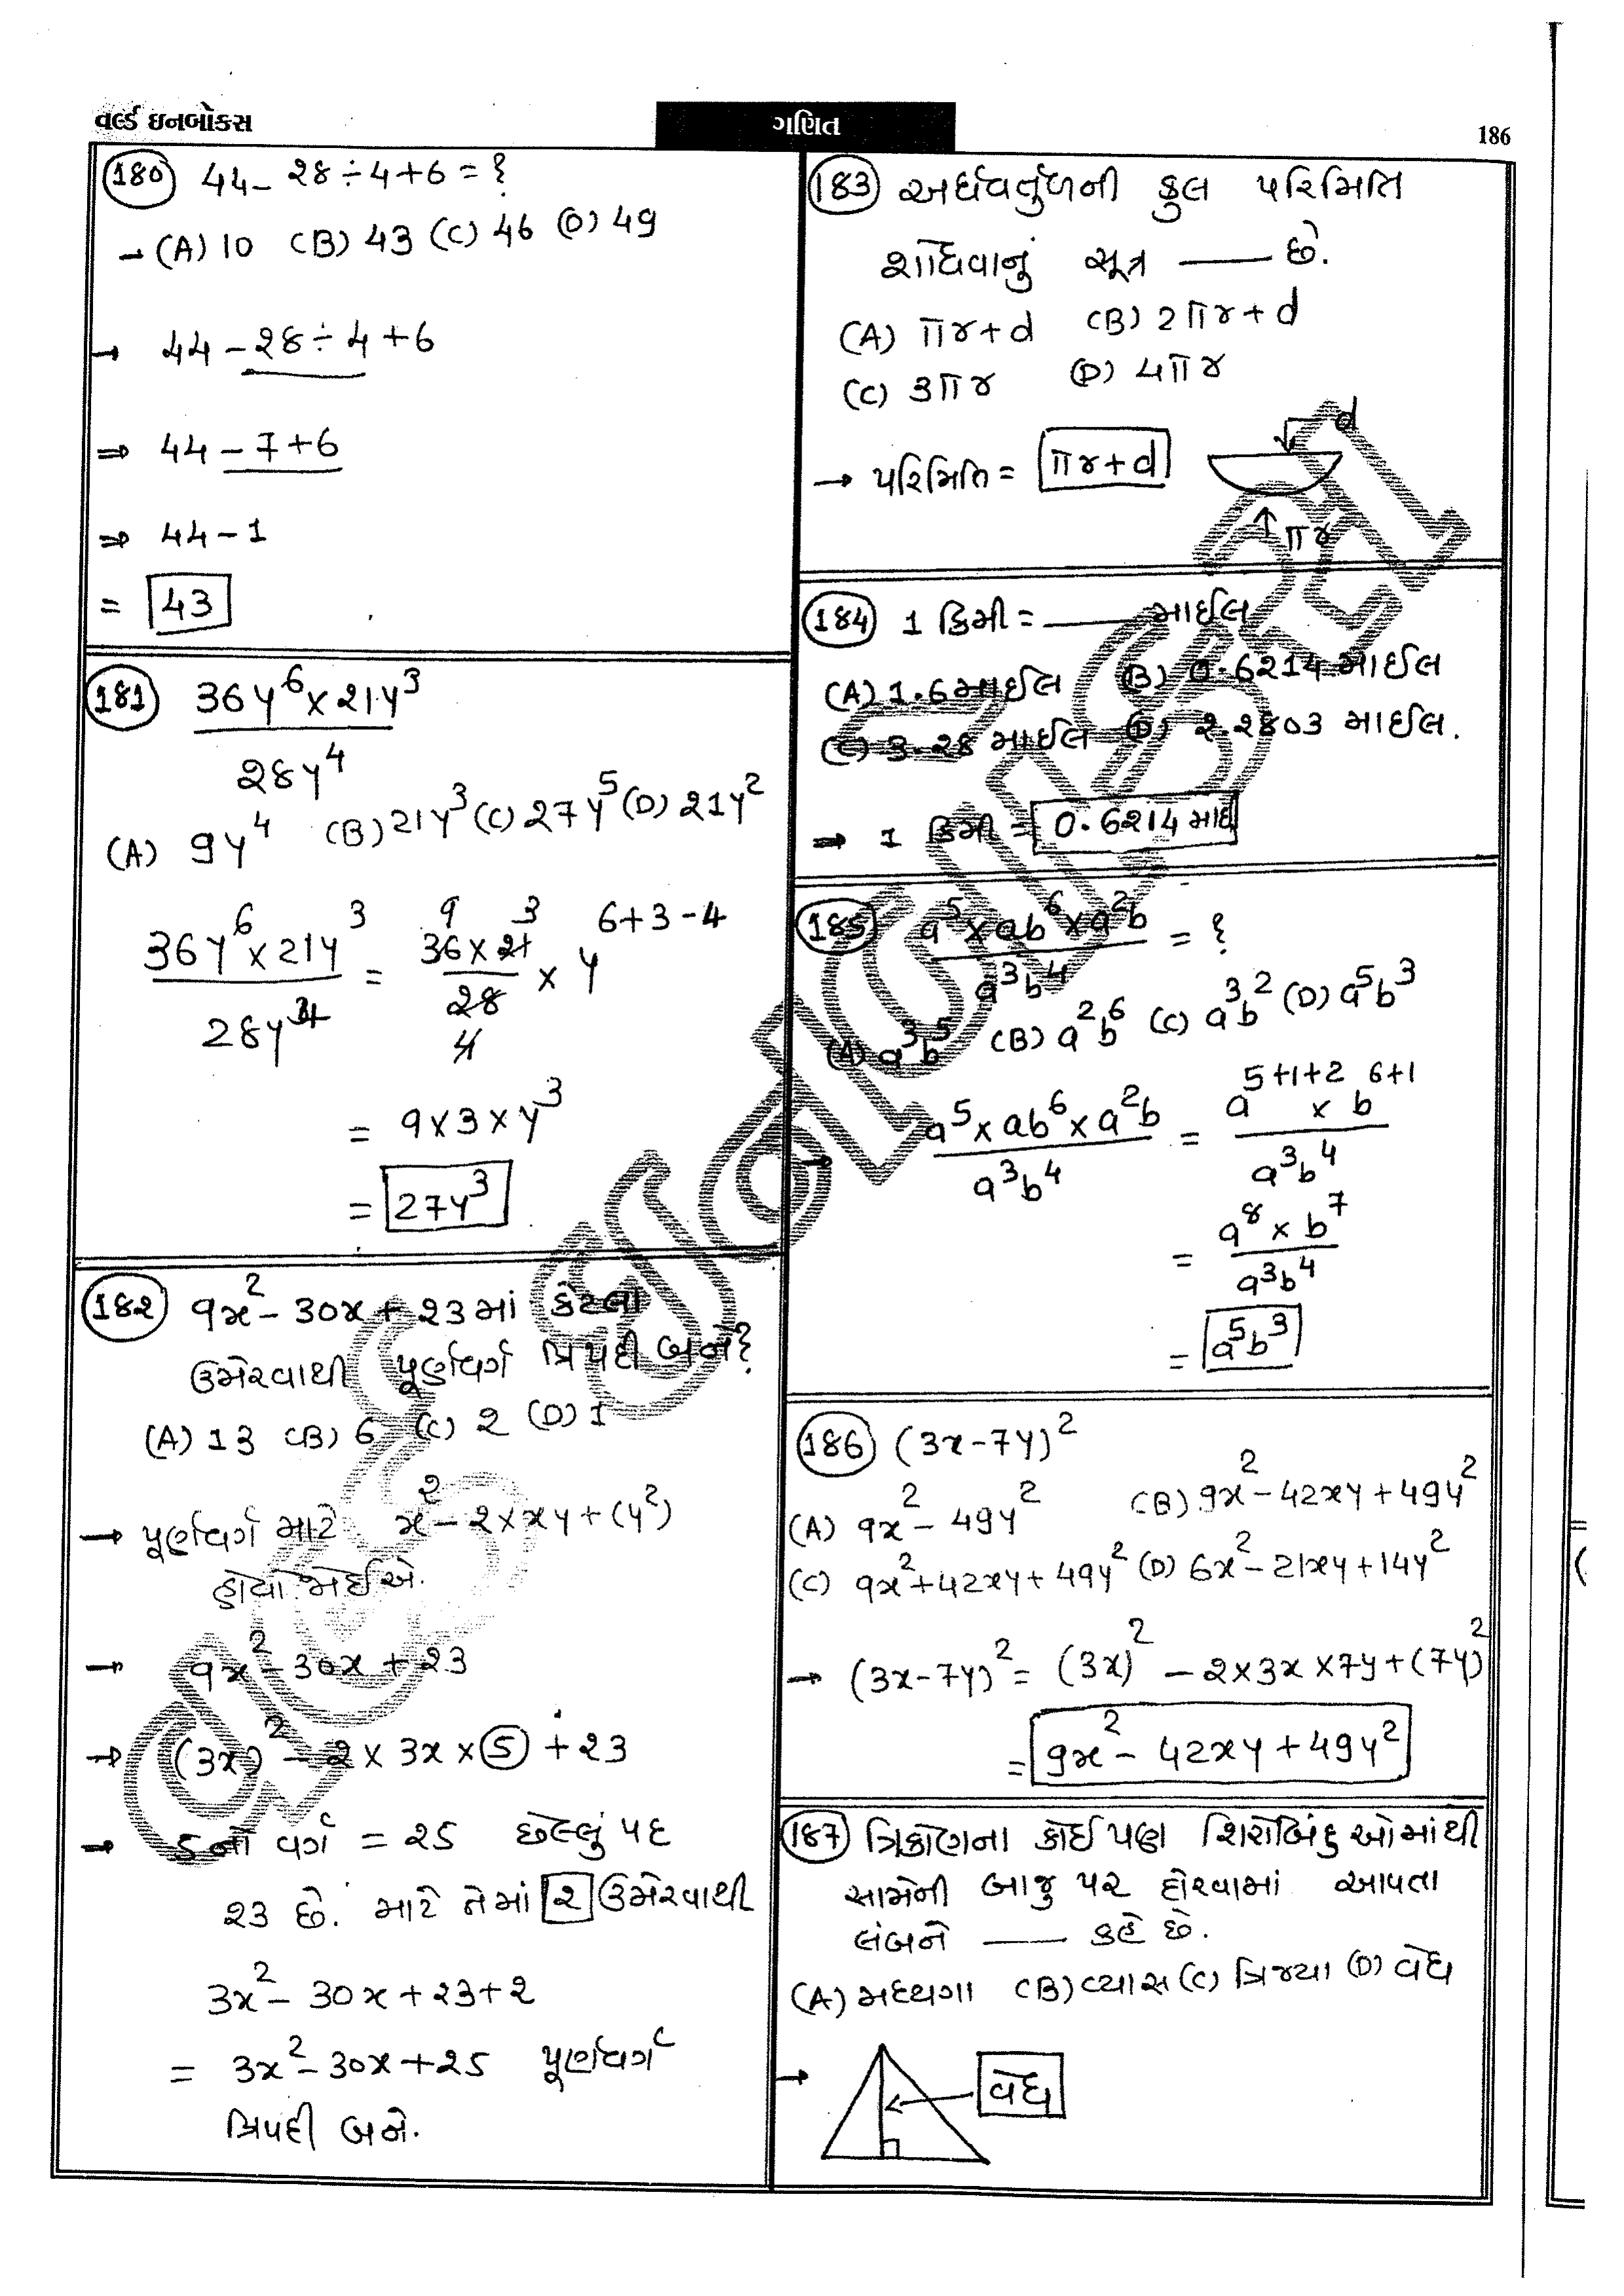 વર્લ્ડ ઇનબોક્સ
ગણિત
186
180 44 - 28 ÷ 4 + 6 = ?
→ (A) 10 (B) 43 (C) 46 (D) 49
→ 44 - 28 ÷ 4 + 6
⇒ 44 - 7 + 6
⇒ 44 - 1
= 43
181 36y⁶ × 21y³
28y⁴
(A) 9y⁴ (B) 21y³ (C) 27y⁵ (D) 21y²
36y⁶ × 21y³ / 28y⁴ = 36 × 21 / 28 × y⁶⁺³⁻⁴
9 3
4
= 9 × 3 × y³
= 27y³
182 9x² - 30x + 23 માં કેટલા
ઉમેરવાથી પૂર્ણવર્ગ ત્રિપદી બને?
(A) 13 (B) 6 (C) 2 (D) 1
→ પૂર્ણવર્ગ માટે x² - 2 × xy + (y²)
હોવો જોઈએ.
→ 9x² - 30x + 23
→ (3x)² - 2 × 3x × 5 + 23
→ 5નો વર્ગ = 25 છેલ્લું પદ
23 છે. માટે તેમાં 2 ઉમેરવાથી
3x² - 30x + 23 + 2
= 3x² - 30x + 25 પૂર્ણવર્ગ
ત્રિપદી બને.
183 અર્ધવર્તુળની કુલ પરિમિતિ
શોધવાનું સૂત્ર —— છે.
(A) πr + d (B) 2πr + d
(C) 3πr (D) 4πr
→ પરિમિતિ = πr + d
d
πr
184 1 કિમી = ——— માઈલ
(A) 1.6 માઈલ (B) 0.6214 માઈલ
(C) 3.28 માઈલ (D) 2.2803 માઈલ.
→ 1 કિમી = 0.6214 માઇ
185 a⁵ × ab⁶ × a²b / a³b⁴ = ?
(A) a³b⁵ (B) a²b⁶ (C) a³b² (D) a⁵b³
→ a⁵ × ab⁶ × a²b / a³b⁴ = a⁵⁺¹⁺² × b⁶⁺¹ / a³b⁴
= a⁸ × b⁷ / a³b⁴
= a⁵b³
186 (3x - 7y)²
(A) 9x² - 49y² (B) 9x² - 42xy + 49y²
(C) 9x² + 42xy + 49y² (D) 6x² - 21xy + 14y²
→ (3x - 7y)² = (3x)² - 2 × 3x × 7y + (7y)²
= 9x² - 42xy + 49y²
187 ત્રિકોણના કોઈ પણ શિરોબિંદુઓમાંથી
સામેની બાજુ પર દોરવામાં આવતા
લંબને —— કહે છે.
(A) મધ્યગા (B) વ્યાસ (C) ત્રિજ્યા (D) વેધ
→ વેધ